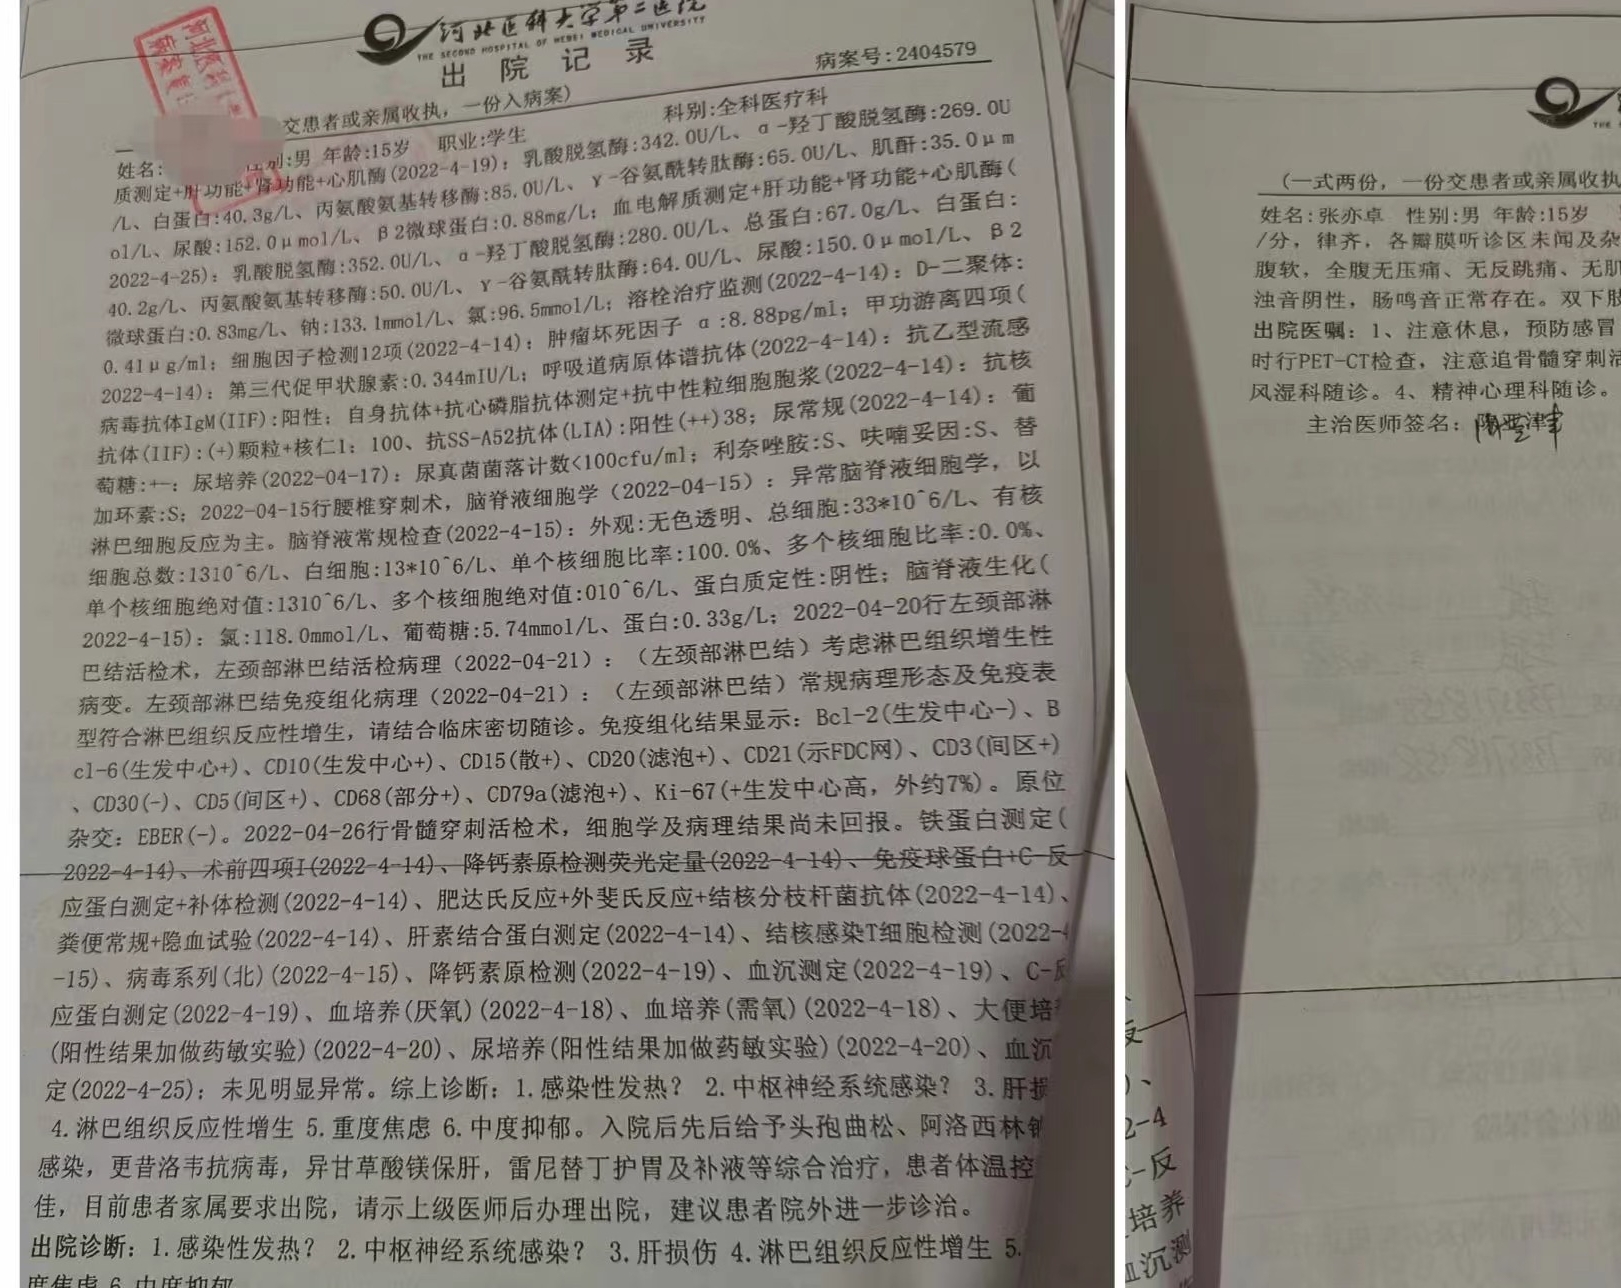 河北医科大学第二医院
THE SECOND HOSPITAL OF HEBEI MEDICAL UNIVERSITY
出院记录
病案号:2404579
交患者或亲属收执，一份入病案)
科别:全科医疗科
姓名: 性别:男 年龄:15岁 职业:学生
质测定+肝功能+肾功能+心肌酶(2022-4-19)：乳酸脱氢酶:342.0U/L、α-羟丁酸脱氢酶:269.0U
/L、白蛋白:40.3g/L、丙氨酸氨基转移酶:85.0U/L、γ-谷氨酰转肽酶:65.0U/L、肌酐:35.0μm
ol/L、尿酸:152.0μmol/L、β2微球蛋白:0.88mg/L；血电解质测定+肝功能+肾功能+心肌酶(
2022-4-25)：乳酸脱氢酶:352.0U/L、α-羟丁酸脱氢酶:280.0U/L、总蛋白:67.0g/L、白蛋白:
40.2g/L、丙氨酸氨基转移酶:50.0U/L、γ-谷氨酰转肽酶:64.0U/L、尿酸:150.0μmol/L、β2
微球蛋白:0.83mg/L、钠:133.1mmol/L、氯:96.5mmol/L；溶栓治疗监测(2022-4-14)：D-二聚体:
0.41μg/ml；细胞因子检测12项(2022-4-14)：肿瘤坏死因子 α:8.88pg/ml；甲功游离四项(
2022-4-14)：第三代促甲状腺素:0.344mIU/L；呼吸道病原体谱抗体(2022-4-14)：抗乙型流感
病毒抗体IgM(IIF):阳性；自身抗体+抗心磷脂抗体测定+抗中性粒细胞胞浆(2022-4-14)：抗核
抗体(IIF):(+)颗粒+核仁1：100、抗SS-A52抗体(LIA):阳性(++)38；尿常规(2022-4-14)：葡
萄糖:+-；尿培养(2022-04-17)：尿真菌菌落计数<100cfu/ml；利奈唑胺:S、呋喃妥因:S、替
加环素:S；2022-04-15行腰椎穿刺术，脑脊液细胞学（2022-04-15）：异常脑脊液细胞学，以
淋巴细胞反应为主。脑脊液常规检查(2022-4-15)：外观:无色透明、总细胞:33*10^6/L、有核
细胞总数:1310^6/L、白细胞:13*10^6/L、单个核细胞比率:100.0%、多个核细胞比率:0.0%、
单个核细胞绝对值:1310^6/L、多个核细胞绝对值:010^6/L、蛋白质定性:阴性；脑脊液生化(
2022-4-15)：氯:118.0mmol/L、葡萄糖:5.74mmol/L、蛋白:0.33g/L；2022-04-20行左颈部淋
巴结活检术，左颈部淋巴结活检病理（2022-04-21）：（左颈部淋巴结）考虑淋巴组织增生性
病变。左颈部淋巴结免疫组化病理（2022-04-21）：（左颈部淋巴结）常规病理形态及免疫表
型符合淋巴组织反应性增生，请结合临床密切随诊。免疫组化结果显示：Bcl-2(生发中心-)、B
cl-6(生发中心+)、CD10(生发中心+)、CD15(散+)、CD20(滤泡+)、CD21(示FDC网)、CD3(间区+)
、CD30(-)、CD5(间区+)、CD68(部分+)、CD79a(滤泡+)、Ki-67(+生发中心高，外约7%)。原位
杂交：EBER(-)。2022-04-26行骨髓穿刺活检术，细胞学及病理结果尚未回报。铁蛋白测定(
2022-4-14)、术前四项I(2022-4-14)、降钙素原检测荧光定量(2022-4-14)、免疫球蛋白+C-反
应蛋白测定+补体检测(2022-4-14)、肥达氏反应+外斐氏反应+结核分枝杆菌抗体(2022-4-14)、
粪便常规+隐血试验(2022-4-14)、肝素结合蛋白测定(2022-4-14)、结核感染T细胞检测(2022-4
-15)、病毒系列(北)(2022-4-15)、降钙素原检测(2022-4-19)、血沉测定(2022-4-19)、C-反
应蛋白测定(2022-4-19)、血培养(厌氧)(2022-4-18)、血培养(需氧)(2022-4-18)、大便培
(阳性结果加做药敏实验)(2022-4-20)、尿培养(阳性结果加做药敏实验)(2022-4-20)、血沉
定(2022-4-25)：未见明显异常。综上诊断：1.感染性发热？ 2.中枢神经系统感染？ 3.肝损
4.淋巴组织反应性增生 5.重度焦虑 6.中度抑郁。入院后先后给予头孢曲松、阿洛西林钠
感染，更昔洛韦抗病毒，异甘草酸镁保肝，雷尼替丁护胃及补液等综合治疗，患者体温控
佳，目前患者家属要求出院，请示上级医师后办理出院，建议患者院外进一步诊治。
出院诊断：1.感染性发热？ 2.中枢神经系统感染？ 3.肝损伤 4.淋巴组织反应性增生 5.
度焦虑 6.中度抑郁
(一式两份，一份交患者或亲属收执
姓名:张亦卓 性别:男 年龄:15岁
/分，律齐，各瓣膜听诊区未闻及杂
腹软，全腹无压痛、无反跳痛、无肌
浊音阴性，肠鸣音正常存在。双下肢
出院医嘱：1、注意休息，预防感冒
时行PET-CT检查，注意追骨髓穿刺活
风湿科随诊。4、精神心理科随诊。
主治医师签名：
反
)、
2-4
C-反
培养
血沉测